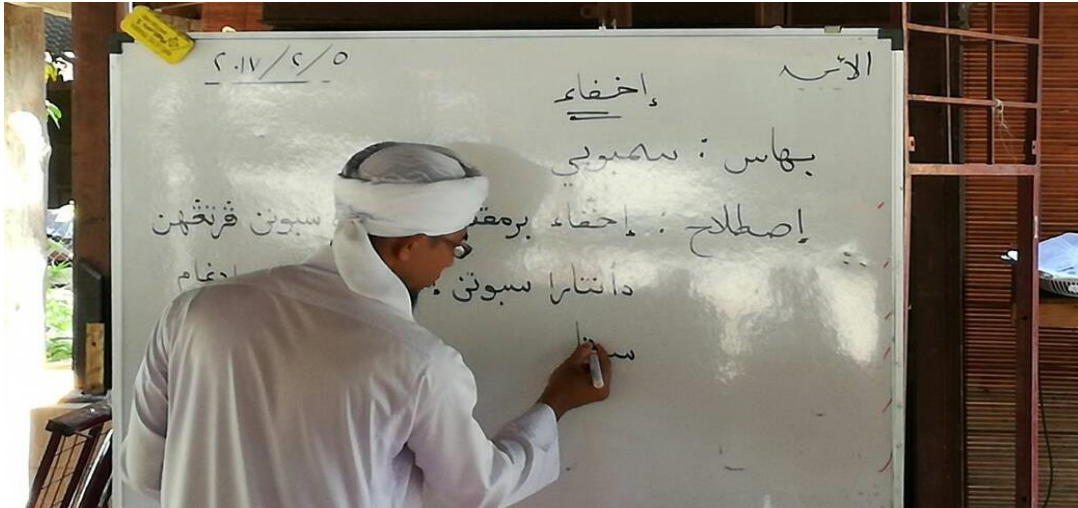 الأحد
٢٠١٧/٢/٥
إخفاء
بهاس : سمبوڽي
إصطلاح : إخفاء سبوتن ڤرتڠهن
دأنتارا سبوتن ادغام